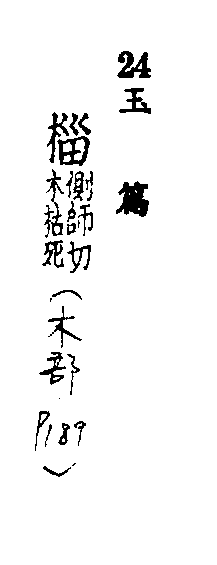 24
玉篇
椔
側師切
木枯死
(木部 P189)